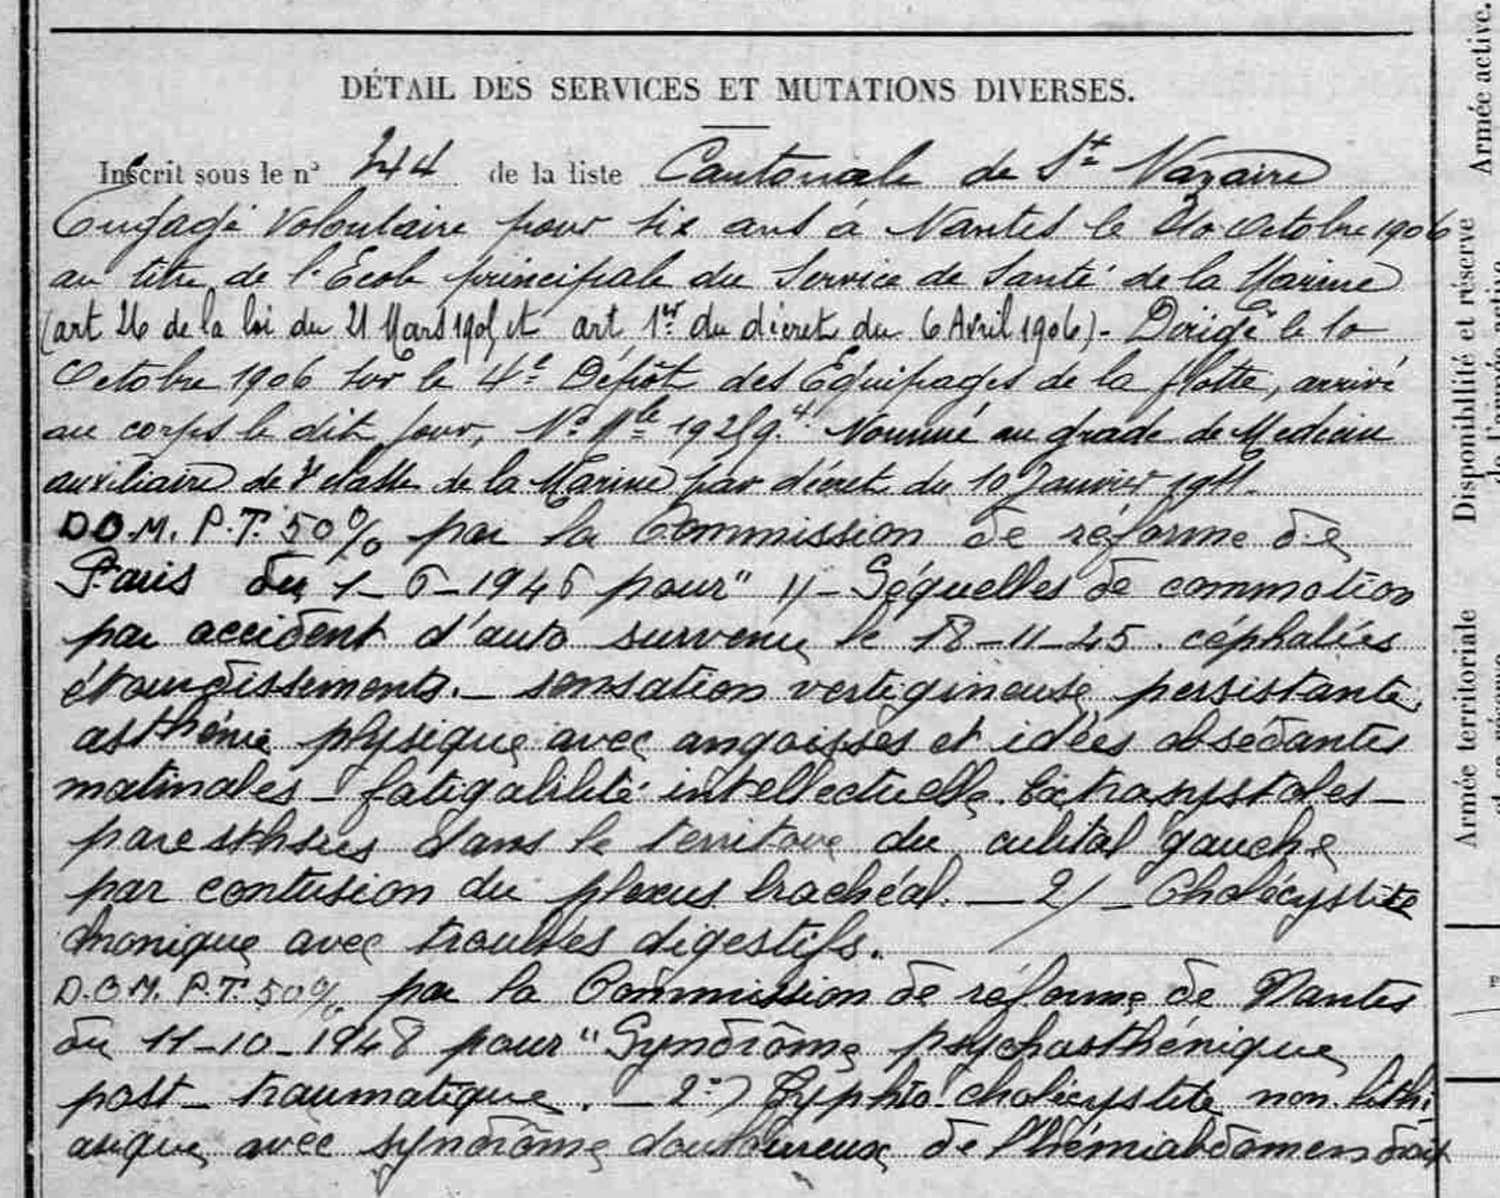 DÉTAIL DES SERVICES ET MUTATIONS DIVERSES.
Inscrit sous le n° 244 de la liste Cantonale de St Nazaire
Engagé Volontaire pour six ans à Nantes le 10 Octobre 1906
au titre de l'Ecole principale du Service de Santé de la Marine
(art 26 de la loi du 21 Mars 1905 et art 1er du décret du 6 Avril 1906) - Dirigé le 10
Octobre 1906 sur le 4e Dépôt des Equipages de la flotte, arrivé
au corps le dit jour, N° Mle 19259.4. Nommé au grade de Médecin
auxiliaire de 2e classe de la Marine par décret du 10 Janvier 1911.
D.O.M. P.T. 50% par la Commission de réforme de
Paris du 1-6-1946 pour " 1) - Séquelles de commotion
par accident d'auto survenu le 18-11-45. céphalées
étourdissements. - sensation vertigineuse persistante,
asthénie physique avec angoisses et idées obsédantes
matinales - fatigabilité intellectuelle. Extrasystoles -
paresthésies dans le territoire du cubital gauche
par contusion du plexus brachéal. - 2) - Cholécystite
chronique avec troubles digestifs.
D.O.M. P.T. 50% par la Commission de réforme de Nantes
du 11-10-1948 pour " Syndrôme psychasthénique
post-traumatique. - 2°) Typhlo-cholécystite non lithi
asique avec syndrôme douloureux de l'hémiabdomen droit
Armée active.
Disponibilité et réserve
de l'armée active
Armée territoriale
et sa réserve